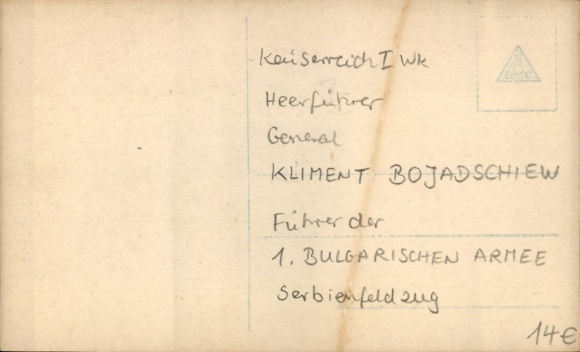 Kaiserreich I Wk
Heerführer
General
KLIMENT BOJADSCHIEW
Führer der
1. BULGARISCHEN ARMEE
Serbienfeldzug
14€